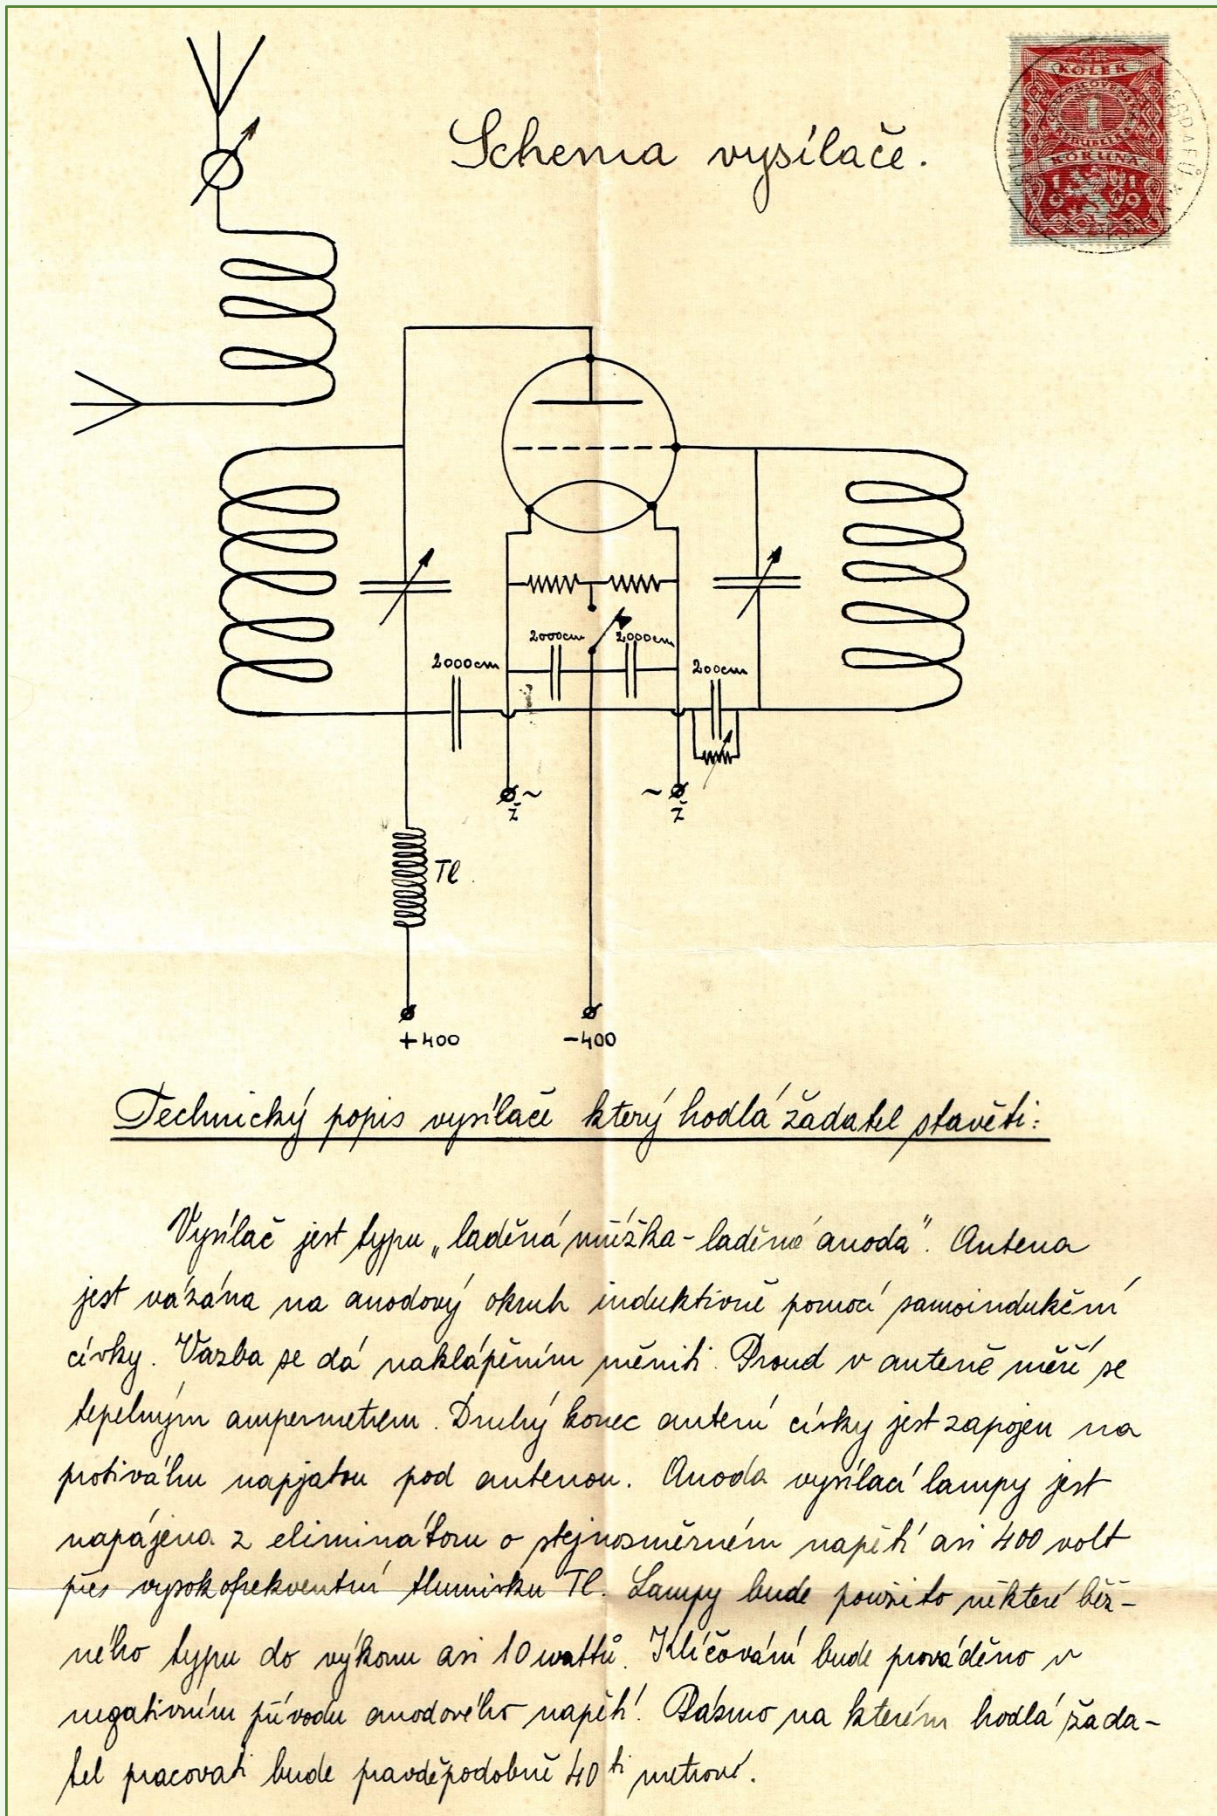 Schema vysílače.
KOLEK
ČESKOSLOVENSKÁ
1
REPUBLIKA
KORUNA
1919
2000cm
2000cm
2000cm
200cm
~
ž
~
ž
Tl.
+400
-400
Technický popis vysílače který hodlá žadatel stavěti:
Vysílač jest typu „laděná mřížka - laděná anoda". Antena
jest vázána na anodový okruh induktivně pomocí samoindukční
cívky. Vazba se dá naklápěním měniti. Proud v anteně měří se
tepelným ampermetrem. Druhý konec antení cívky jest zapojen na
protiváhu napjatou pod antenou. Anoda vysílací lampy jest
napájena z eliminátoru o stejnosměrném napětí asi 400 volt
přes vysokofrekventní tlumivku Tl. Lampy bude použito některé běž-
ného typu do výkonu asi 10 wattů. Klíčování bude prováděno v
negativním přívodu anodového napětí. Pásmo na kterém hodlá žada-
tel pracovati bude pravděpodobně 40ti metrové.